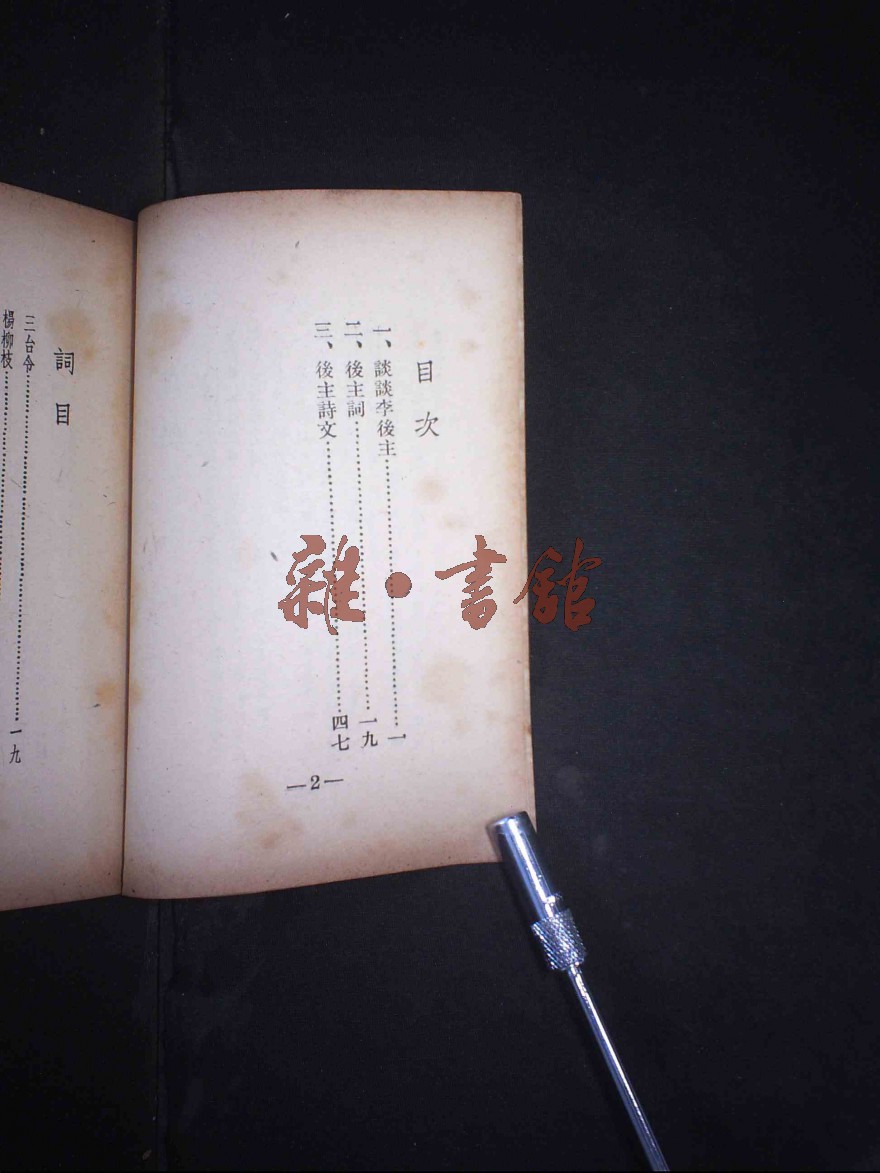 目次
一、談談李後主……一
二、後主詞……一九
三、後主詩文……四七
—2—
詞目
三台令……一九
楊柳枝……
雜·書館